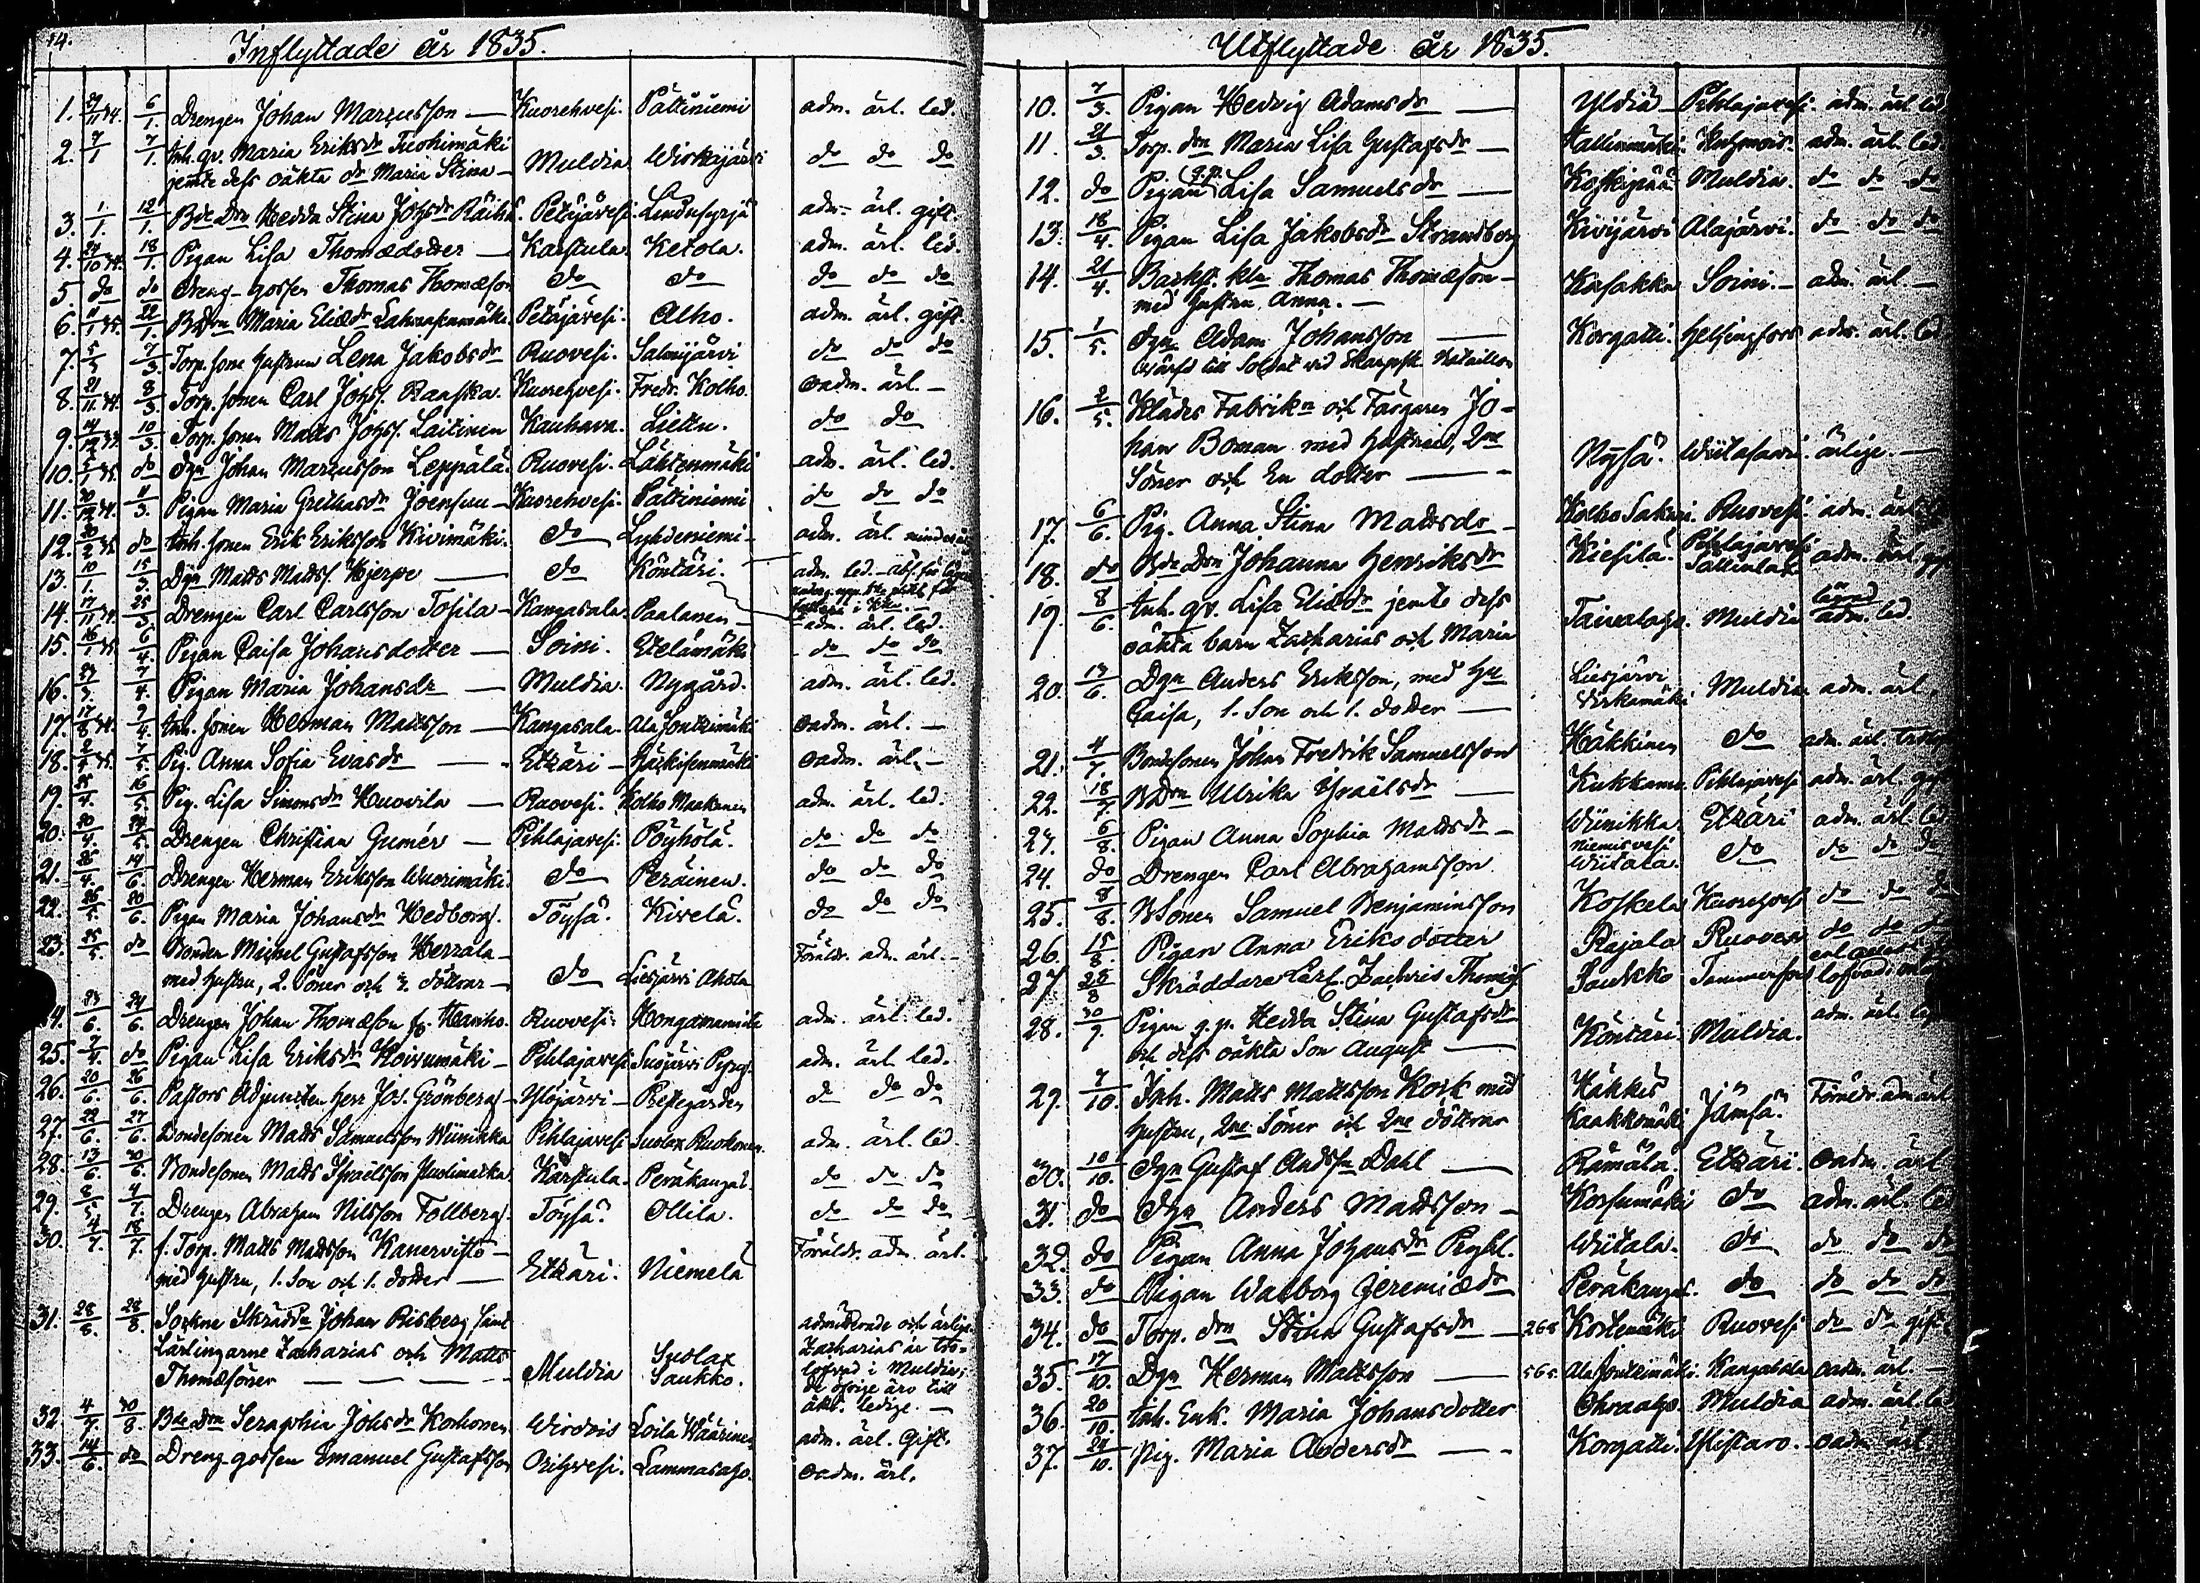 14.
Inflyttade år 1835.
1. 27/11 34. 6/1. Drengen Johan Marcusson — Kuorehvesi. Pättiniemi adm. ärl. led.
2. 7/1 7/1. Inh. gv. Maria Eriksdr Tuohimäki
jemte dess oäkta dr Maria Stina — Muldia Wirkajärvi do do do
3. 1/1. 12/1. Bde Drn Hedda Stina Johsdr Räihä. Petäjävesi. adm. ärl. gift.
4. 27/10 34. 18/1. Pigan Lisa Thomædotter — Karstula Ketola. adm. ärl. led.
5. do do Dreng-gossen Thomas Thomæson do do do do do
6. 11/1 35. 22/1. BDrn Maria Eliædr Petäjävesi. Alho. adm. ärl. gift.
7. 5/3 7/3. Torp. sons hustrun Lena Jakobsdr Ruovesi. Salmijärvi do do do
8. 21/11 34. 8/3. Torp. sonen Carl Johss. Raaska. Kuorehvesi. Fredr. Kolho. oadm. ärl. —
9. 14/12 33. 10/3. Torp. sonen Matts Johss. Laitinen Kauhava. Liettu. do do
10. 5/1 35. do Dgn Johan Marcusson Leppälä. Ruovesi. Lähtenmäki adm. ärl. led.
11. 30/12 34. 11/3. Pigan Maria Grethasdr Joensuu — Kuorehvesi. Pättiniemi do do do
12. 20/2 35. do Inh. sonen Erik Eriksson Kivimäki. do Lyhdeniemi — adm. ärl.
13. 10/1. 15/3. Dgn Matts Matts. Hjerpe — do Köntäri. adm. led.
14. 17/11 34. 25/3. Drengen Carl Carlsson Tosila — Kangasala. Paalanen — adm. ärl. led.
15. 16/1 35. 6/4. Pigan Caisa Johansdotter — Soini. Etelämäki do do do
16. 27/3. 7/4. Pigan Maria Johansdr — Muldia. Nygård. adm. ärl. led.
17. 17/8 34. 9/4. Inh. sonen Herman Mattsson — Kangasala. Ala Jouttimäki oadm. ärl. —
18. 2/5 35. 7/5. Pig. Anna Sofia Evasdr — Etzäri — Härkisenmäki oadm. ärl. —
19. 25/4. 16/5. Pig. Lisa Simonsdr Huovila — Ruovesi. Kolho Maakanen adm. ärl. led.
20. 20/4. 24/5. Drengen Christian Gumér — Pihlajavesi. Pöyhölä. do do do
21. 25/4. 14/6. Drengen Herman Eriksson Wuorimäki. do Peräinen. do do do
22. 26/5. 20/6. Pigan Maria Johansdr Hedborg. Töysä. Kivelä. do do do
23. 25/5. do Bonden Michel Gustafsson Herrala — Föräldr. adm. ärl. —
med hustru, 2. Söner och 3. döttrar — do Liesjärvi Ahola
24. 23/6. 24/6. Drengen Johan Thomæson Ruovesi. Hongamamila adm. ärl. led.
25. 2/4. do Pigan Lisa Eriksdr Koivumäki — Pihlajavesi Suojärvi adm. ärl. led.
26. 20/6. 26/6. Pastors Adjuncten Herr Jos. Grönberg — Ylöjärvi — Prestegården do do do
27. 22/6. 27/6. Bondesonen Matts Samuelsson Wiinikka Pihlajavesi Suolax Ruokonen adm. ärl. led.
28. 13/6. 30/6. Bondesonen Matts Israelsson Karstula. Peräkangas. do do do
29. 8/5. 4/7. Drengen Abraham Nilsson Tollberg. Töysä. Ollila. do do do
30. 4/7. 18/7. f. Torp. Matts Mattsson Kanervisto — Föräldr. adm. ärl.
med hustru, 1. Son och 1. dotter — Etzäri. Niemelä
31. 28/8. 28/8. Sockne Skräddn Johan Risberg samt admitterade och ärlige.
Lärlingarne Zacharias och Matts Suolax Zacharias är tro-
Thomæsöner — — Muldia Saukko. lofvad i Muldia;
de öfrige äro till
äkt. ledige. —
32. 4/7. 30/8. Bde Drn Seraphia Johsdr Korhonen Wirdois Loila Määrinen adm. ärl. Gift.
33. 14/6. do Dreng gossen Emanuel Gustafsson Orihvesi. Lammasaho. oadm. ärl.
Utflyttade år 1835.
10. 7/3. Pigan Hedvig Adamsdr — Yldiä Pihlajavesi. adm. ärl. led
11. 21/3. Torp. drn Maria Lisa Gustafsdr — Kallinmäki. adm. ärl. led.
12. do Pigan g.p. Lisa Samuelsdr — Koskipää Muldia. do do do
13. 18/4. Pigan Lisa Jakobsdr Strandberg Kivijärvi Alajärvi. do do do
14. 21/4. Backst. kln Thomas Thomæson — Kasakka Soini. — adm. ärl. —
med hustru Anna. —
15. 1/5. Dgn Adam Johansson — Korgatti. Helsingfors adm. ärl. led
till Soldat vid Skarpsk. Bataillon
16. 2/5. Klädes Fabrikn och Färgaren Jo-
han Boman med hustru, 2ne
Söner och En dotter — Nysä. Wiitasaari. ärlige. —
17. 6/6. Pig. Anna Stina Mattsdr — Kolho Sakari. Ruovesi adm. ärl.
18. do Bde Drn Johanna Henriksdr Kiesilä. Pihlajavesi adm. ärl.
19. 8/6. Inh. gv. Lisa Eliædr jemte dess
oäkta barn Zacharias och Maria Taivalaho. Muldia adm. led.
20. 13/6. Dgn Anders Eriksson, med hu Liesjärvi
Caisa, 1. Son och 1. dotter — Virkamäki Muldia adm. ärl.
21. 4/7. Bondesonen Johan Fredrik Samuelsson Häkkinen do adm. ärl.
22. 18/7. BDrn Ulrika Israëlsdr — Kukkamo. Pihlajavesi adm. ärl.
23. 6/8. Pigan Anna Sophia Mattsdr — Wiinikka. Etzäri adm. ärl. led
24. do Drengen Carl Abrahamsson. Niemisvesi Wiitala. do do do do
25. 8/8. BSonen Samuel Benjaminsson Koskela Kuorehvesi do do
26. 15/8. Pigan Anna Eriksdotter Rajala Ruovesi do do
27. 28/8 Skräddare Zachris Thomæs. Saukko Tammerfors
28. 30/9. Pigan g.p. Hedda Stina Gustafsdr adm. ärl.
och dess oäkta Son August — Köntäri. Muldia.
29. 7/10. Inh. Matts Mattsson Kork med Häkkis
hustru, 2ne Söner och 2ne döttrar Kaakkomäki Jämsä. Föräldr. adm. ärl
30. 10/10. Dgn Gustaf Andssn Dahl — Rämälä. Etzäri. oadm. ärl
31. do Dgn Anders Mattsson — Korsumäki do adm. ärl. led
32. do Pigan Anna Johansdr Wiitala. do do do do
33. do Pigan Walborg Jeremiædr Peräkangas. do do do do
34. do Torp. drn Stina Gustafsdr — 268 Kortemäki Ruovesi do do gift
35. 17/10. Dgn Herman Mattsson — 565 Ala Jouttimäki. Kangasala oadm. ärl. —
36. 20/10. Inh. Enk. Maria Johansdotter Ohraaho. Muldia adm. ärl. led
37. 24/10. Pig. Maria Andersdr — Korgatti. Ylistaro. — oadm ärl.